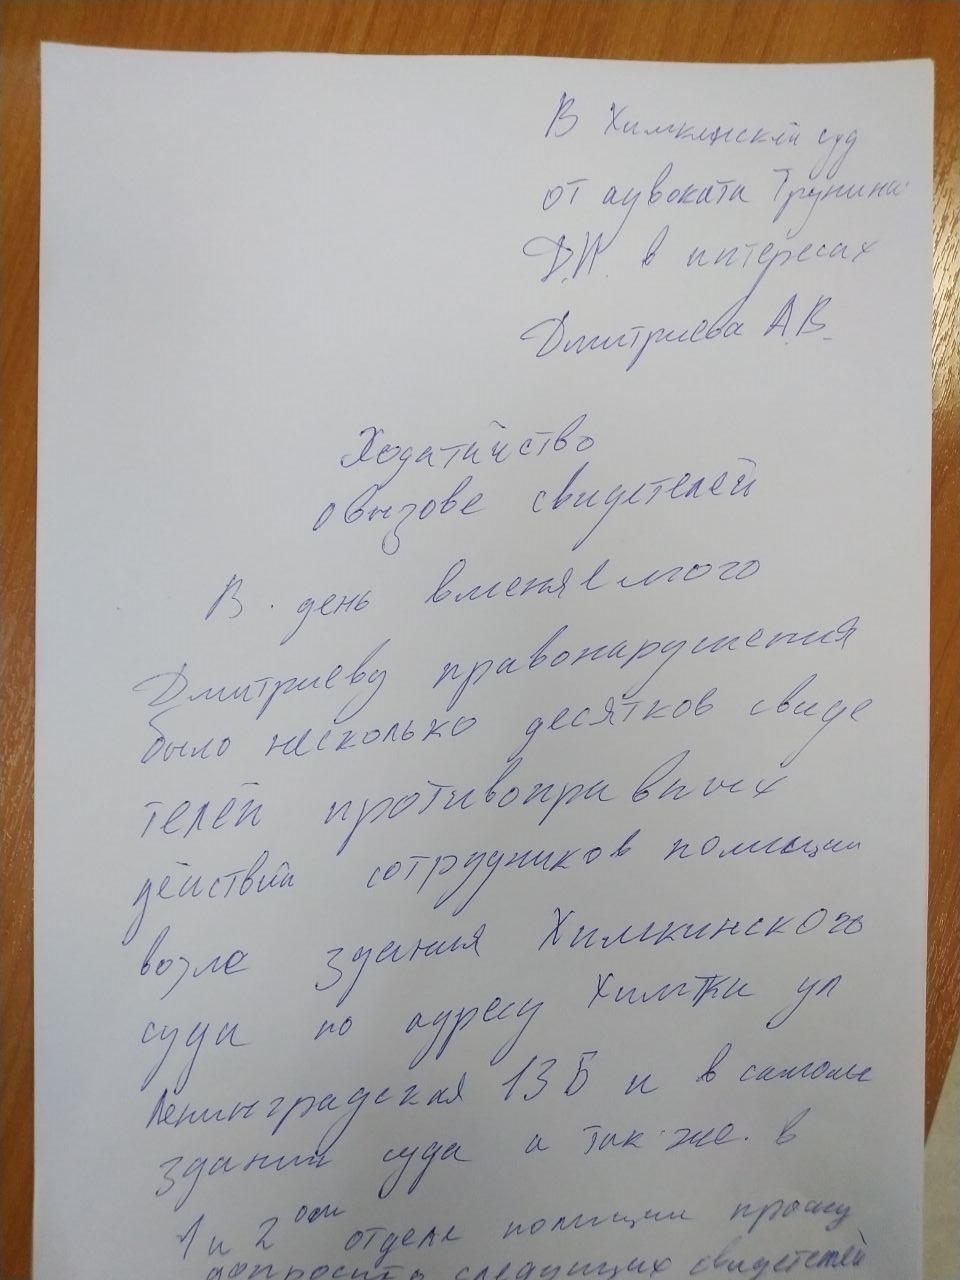 В Химкинский суд
от адвоката Трунина
Д.И. в интересах
Дмитриева А.В.
Ходатайство
о вызове свидетелей
В день вменяемого
Дмитриеву правонарушения
было несколько десятков свиде
телей противоправных
действий сотрудников полиции
возле здания Химкинского
суда по адресу Химки ул
Ленинградская 13Б и в самом
здании суда а так же в
1 и 2 ом отделе полиции прошу
допросить следующих свидетелей